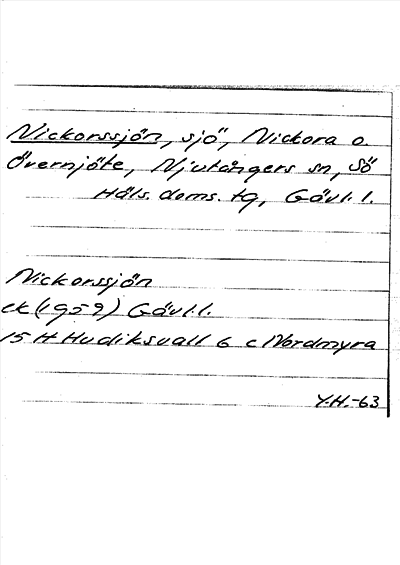 Nickorssjön, sjö, Nickora o.
Övernjöte, Njutångers sn, Sö
Häls. doms. tg, Gävl. l.
Nickorssjön
ek (1959) Gävl. l.
15 H Hudiksvall 6 c Nordmyra
Y.H.-63